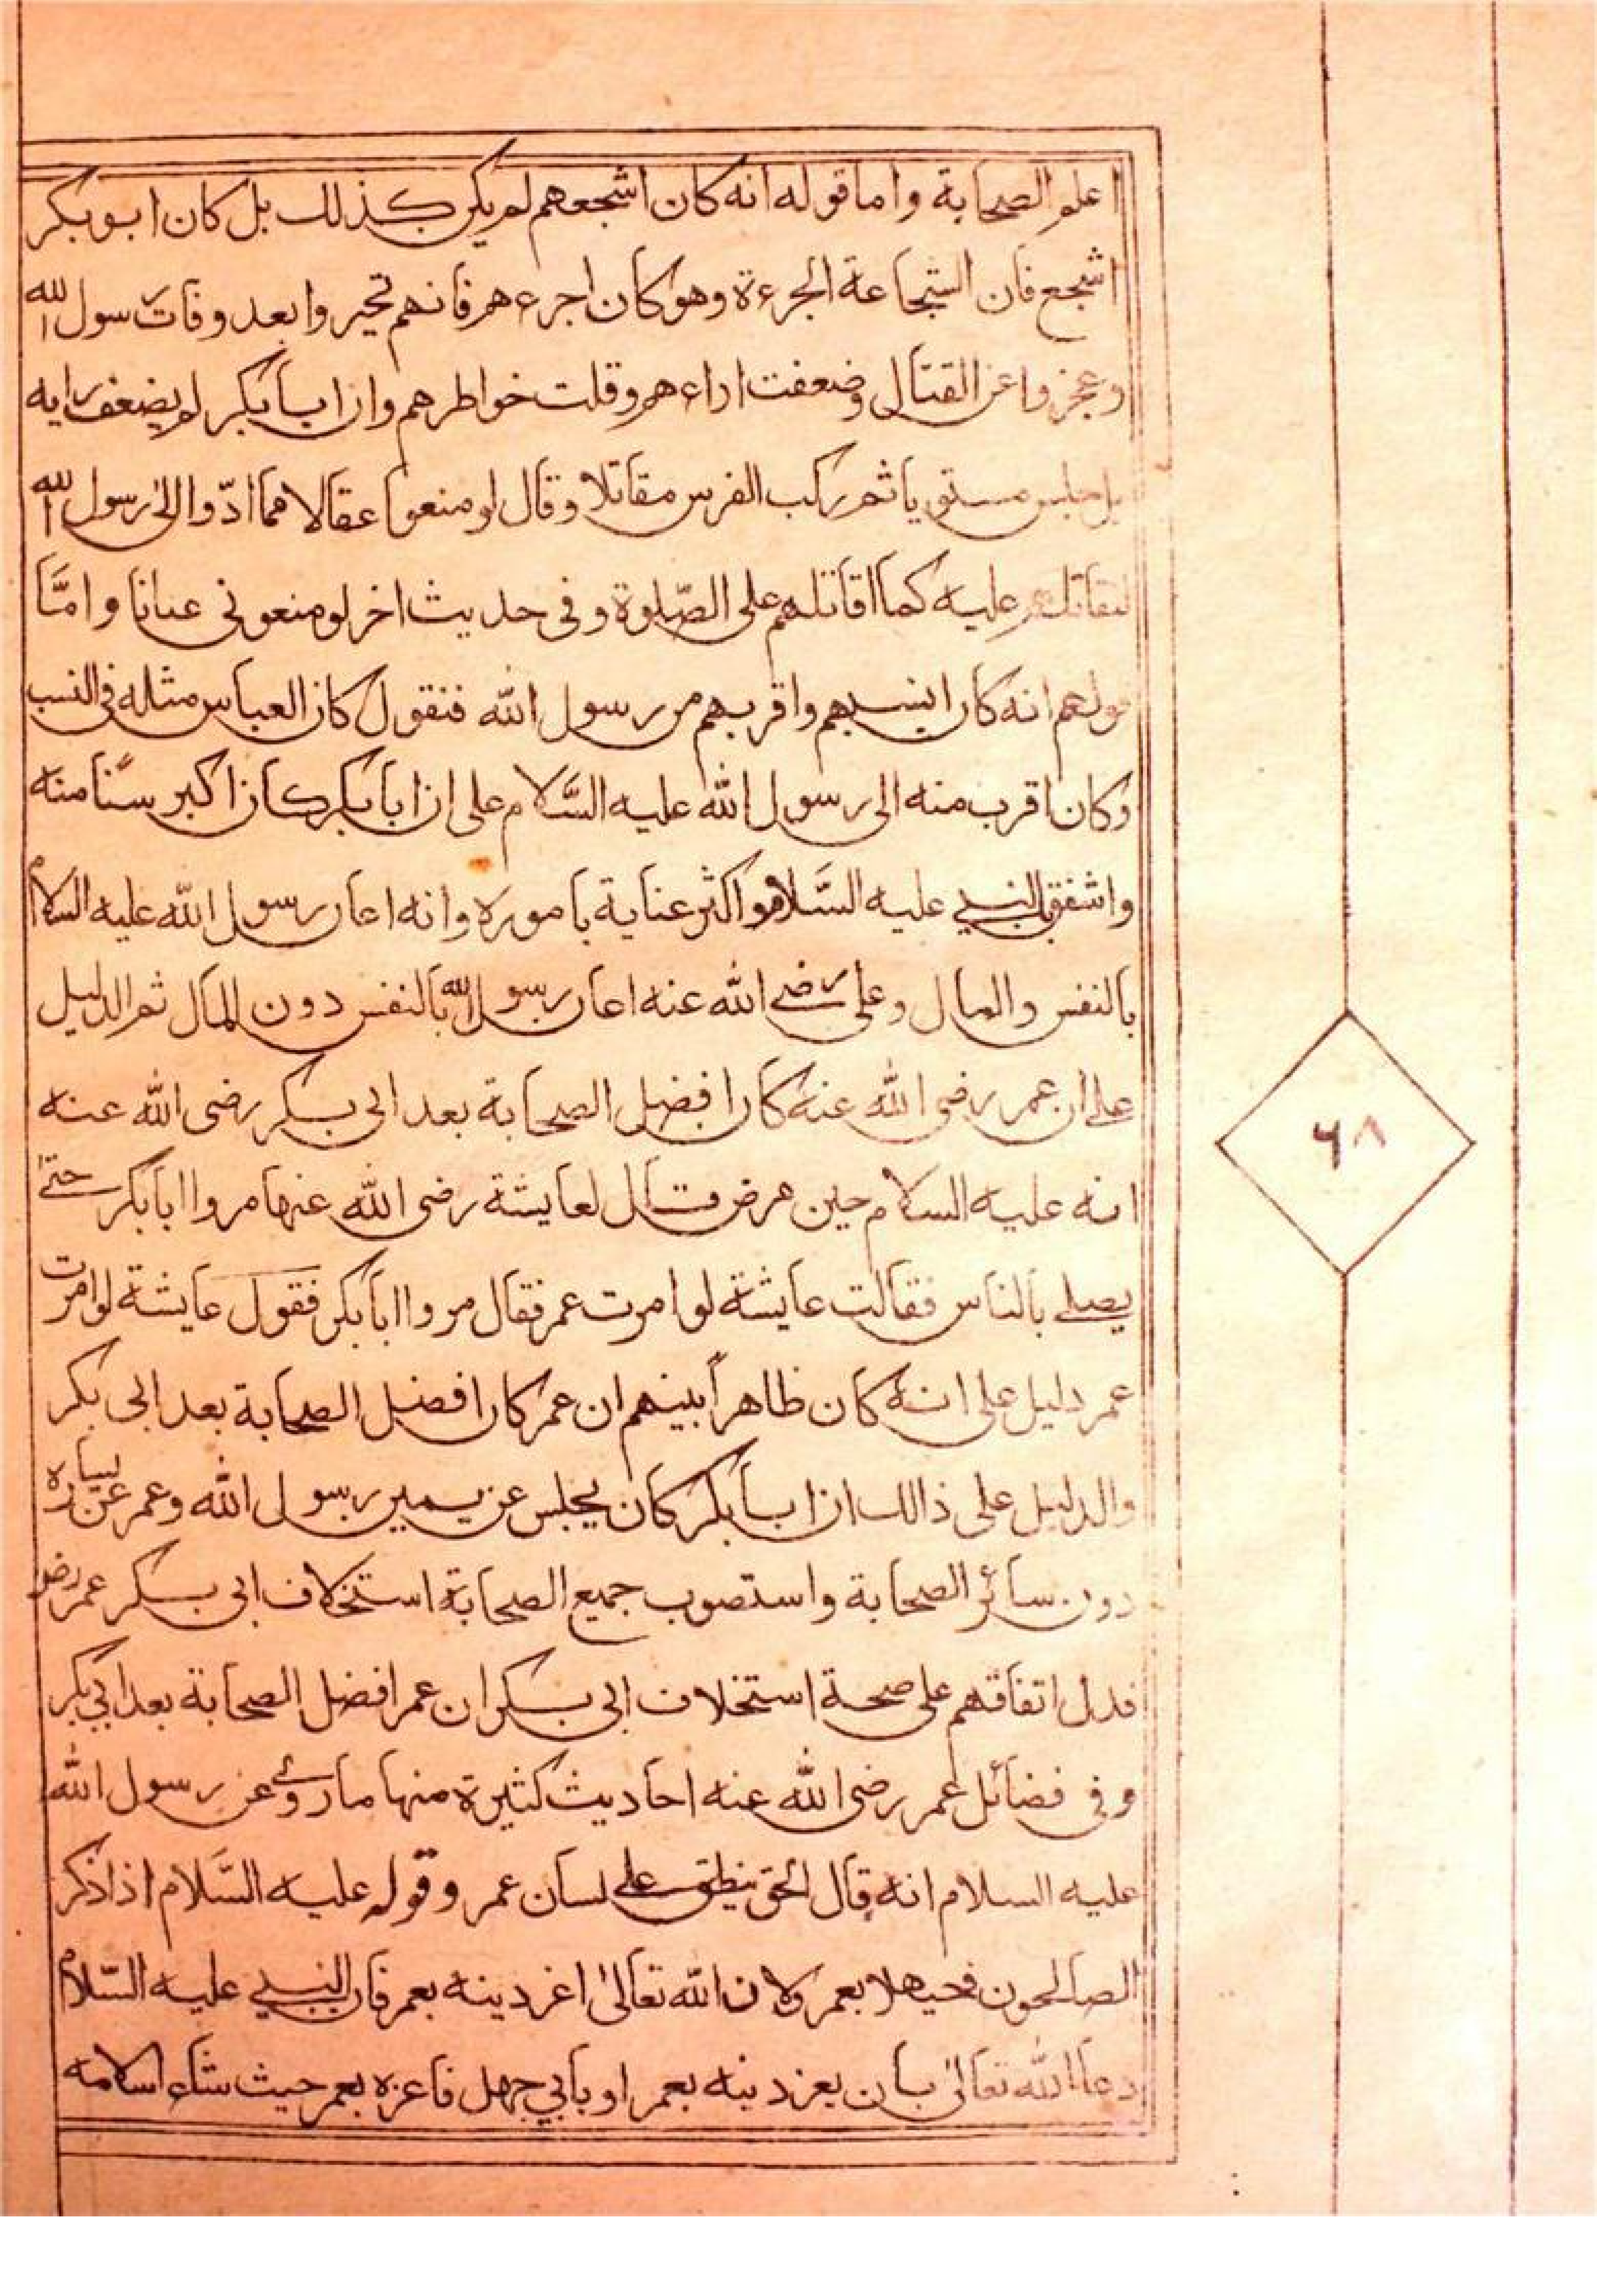 اعلم الصحابة واما قوله انه كان اشجعهم لم يكن كذلك بل كان ابو بكر
اشجع فان الشجاعة الجرءة وهو كان اجرءهم فانهم تحيروا بعد وفات رسول الله
وعجزوا عن القتال وضعفت اراءهم وقلت خواطرهم وان ابا بكر لم يضعف رايه
بل جلس مستويا ثم ركب الفرس مقاتلا وقال لو منعوا عقالا مما ادّوا الى رسول الله
لنقاتلهم عليه كما اقاتلهم على الصّلوة وفى حديث اخر لو منعونى عنانا وامّا
قولهم انه كان انسبهم واقربهم من رسول الله فنقول كان العباس مثله فى النسب
وكان اقرب منه الى رسول الله عليه السَّلام على ان ابا بكر كان اكبر سنًا منه
واشفق بالنبى عليه السَّلام واكثر عناية باموره وانه اعان رسول الله عليه السلام
بالنفس والمال وعلى رضى الله عنه اعان رسول الله بالنفس دون المال ثم الدليل
على ان عمر رضى الله عنه كان افضل الصحابة بعد ابى بكر رضى الله عنه
انه عليه السلام حين مرض قال لعايشة رضى الله عنها مروا ابا بكر حتى
يصلى بالناس فقالت عايشة لو امرت عمر فقال مروا ابا بكر فقول عايشة لو امرت
عمر دليل على انه كان ظاهراً بينهم ان عمر كان افضل الصحابة بعد ابى بكر
والدليل على ذالك ان ابا بكر كان يجلس عن يمين رسول الله وعمر عن يساره
دون سائر الصحابة واستصوب جميع الصحابة استخلاف ابى بكر عمر رض
فدل اتفاقهم على صحة استخلاف ابى بكر ان عمر افضل الصحابة بعد ابي بكر
وفى فضائل عمر رضى الله عنه احاديث كثيرة منها ما روى عن رسول الله
عليه السلام انه قال الحق ينطق على لسان عمر وقوله عليه السَّلام اذا ذكر
الصالحون فحيهلا بعمر ولان الله تعالىٰ اعز دينه بعمر فان النبى عليه السّلام
دعا الله تعالىٰ بان يعز دينه بعمر او بابي جهل فاعزه بعمر حيث شاء اسلامه
٦٨